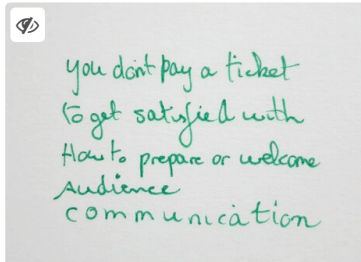 you don't pay a ticket
to get satisfied with
How to prepare or welcome
Audience
communication